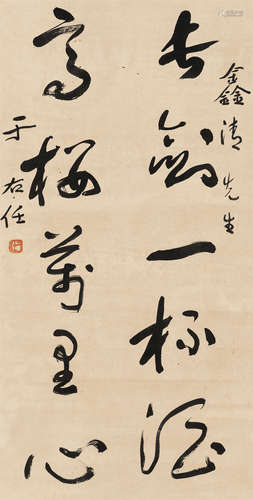 鑫清先生
长剑一杯酒
高楼万里心
于右任